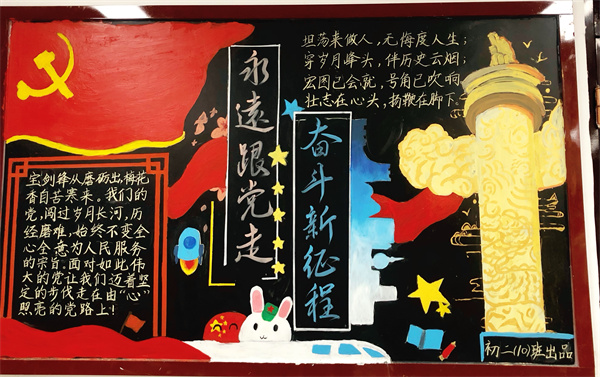 坦荡来做人，无悔度人生；
穿岁月峰头，伴历史云烟；
宏图已会就，号角已吹响
壮志在心头，扬鞭在脚下。
永遠跟党走
奋斗新征程
宝剑锋从磨砺出，梅花
香自苦寒来。我们的
党，闯过岁月长河，历
经磨难，始终不变全
心全意为人民服务
的宗旨。面对如此伟
大的党让我们迈着坚
定的步伐走在由“心”
照亮的党路上！
初二(10)班出品